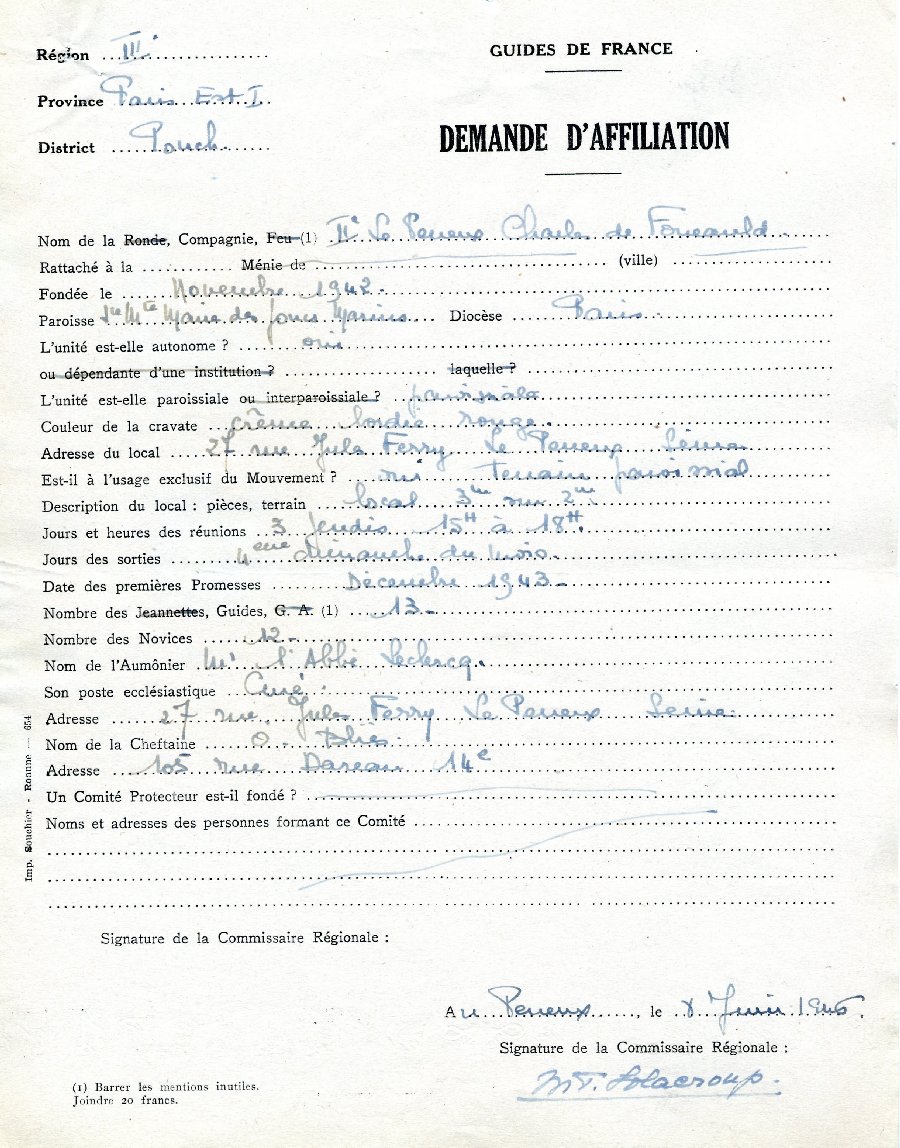 GUIDES DE FRANCE
Région III
Province Paris Est I
District
DEMANDE D'AFFILIATION
Nom de la Ronde, Compagnie, Feu (1) IIe Le Perreux Charles de Foucauld
Rattaché à la Ménie de (ville)
Fondée le Novembre 1942
Paroisse des Joncs Marins Diocèse Paris
L'unité est-elle autonome ? oui
ou dépendante d'une institution ? laquelle ?
L'unité est-elle paroissiale ou interparoissiale ? paroissiale
Couleur de la cravate crême bordée rouge
Adresse du local 27 rue Jules Ferry Le Perreux Seine
Est-il à l'usage exclusif du Mouvement ? oui terrain paroissial
Description du local : pièces, terrain local 3m sur 2m
Jours et heures des réunions 3 jeudis 15H à 18H.
Jours des sorties 4eme dimanche du mois
Date des premières Promesses Décembre 1943
Nombre des Jeannettes, Guides, G. A. (1) 13
Nombre des Novices 12
Nom de l'Aumônier Mr l'Abbé Leclercq
Son poste ecclésiastique Curé
Adresse 27 rue Jules Ferry Le Perreux Seine
Nom de la Cheftaine O.
Adresse 105 rue Dareau 14e
Un Comité Protecteur est-il fondé ?
Noms et adresses des personnes formant ce Comité
Imp. Souchier - Roanne — 654
Signature de la Commissaire Régionale :
Au Perreux, le 8 Juin 1945
Signature de la Commissaire Régionale :
(1) Barrer les mentions inutiles.
Joindre 20 francs.